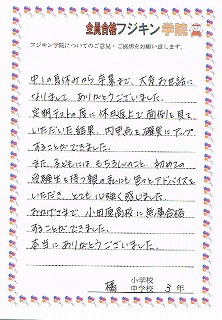 全員合格フジキン学院
フジキン学院についてのご意見・ご感想をお願い致します。
中1の夏休みから卒業まで、大変お世話に
なりまして、ありがとうございました。
定期テストの度に休み返上で面倒を見て
いただいた結果、内申点を確実にアップ
することができました。
また、子どもにはもちろんのこと、初めての
受験生を持つ親の私にも色々とアドバイスを
いただき、とても心強く感じました。
おかげさまで、小田原高校に無事合格
することができました。
本当にありがとうございました。
橘 小学校 中学校 3年